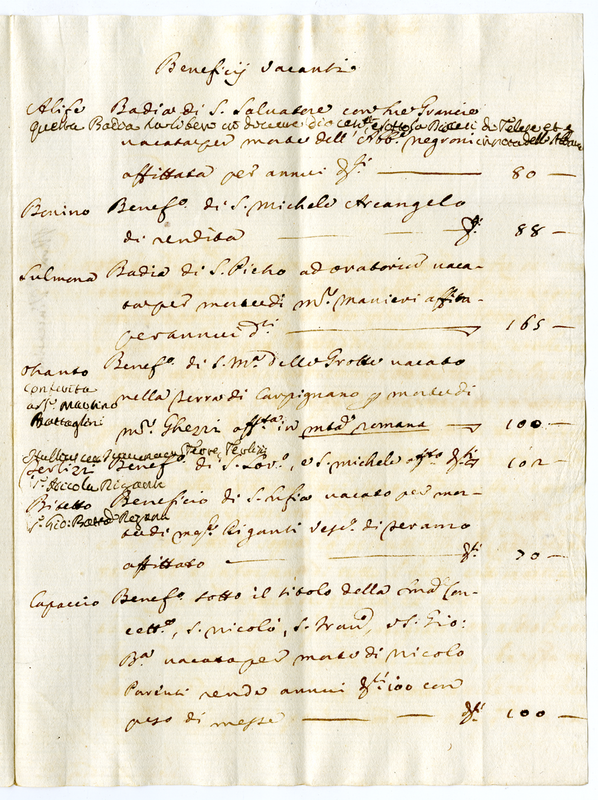 Beneficij vacanti
Alife Badia di S. Salvatore con tre Grancie
questa Badia Diocesi di Telese et è
vacata per morte dell' Abb.e negroni
affittata per annui d.ti — 80 —
Benef.o di S. Michele Arcangelo
di rendita — d.ti 88 —
Sulmona Badia di S. Pietro ad oratorium vaca-
ta per morte di m.r Manieri affitta-
per annui d.ti — 165 —
Otranto Benef.o di S. M.a delle Grotte vacato
conferita
a S.r Martino
Battaglini
nella terra di Carpignano p morte di
m.r Ghezzi aff.ta in mta.a romana — 100 —
Terlizzi Benef.o di S. , e S. Michele aff.to d.ti 102 —
S.r Nicola Riganti
Bitetto Beneficio di S. Sofia vacato per mor-
S.r Gio: Batta
te di mo.r Riganti Vesc.o di Teramo
affittato — d.ti 70 —
Capaccio Benef.o sotto il titolo della Mad.a Con-
cett.e, S. Nicolò, S. Fran.o, e S. Gio:
B.a vacato per morte di Nicolo
Parenti rende annui d.ti 100 con
peso di messe — d.ti 100 —